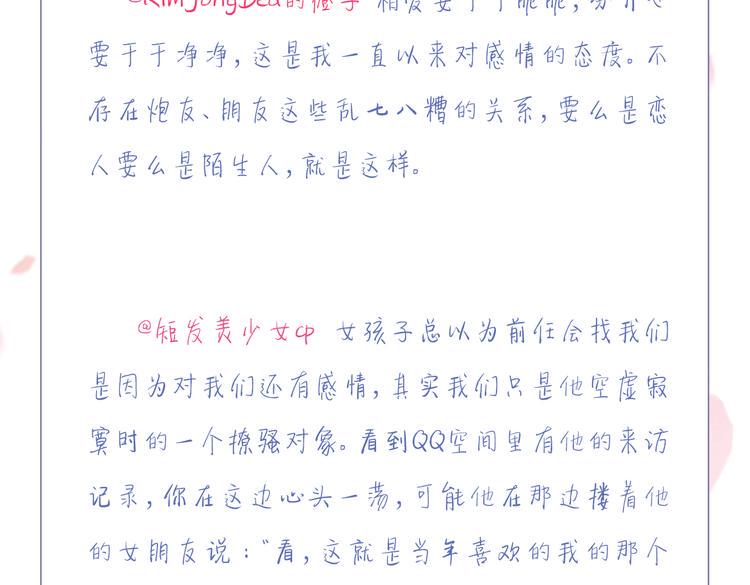 @KimJongDea的 相爱要干干脆脆,分开也
要干干净净,这是我一直以来对感情的态度。不
存在炮友、朋友这些乱七八糟的关系,要么是恋
人要么是陌生人,就是这样。
@短发美少女cp 女孩子总以为前任会找我们
是因为对我们还有感情,其实我们只是他空虚寂
寞时的一个撩骚对象。看到QQ空间里有他的来访
记录,你在这边心头一荡,可能他在那边搂着他
的女朋友说:“看,这就是当年喜欢的我的那个